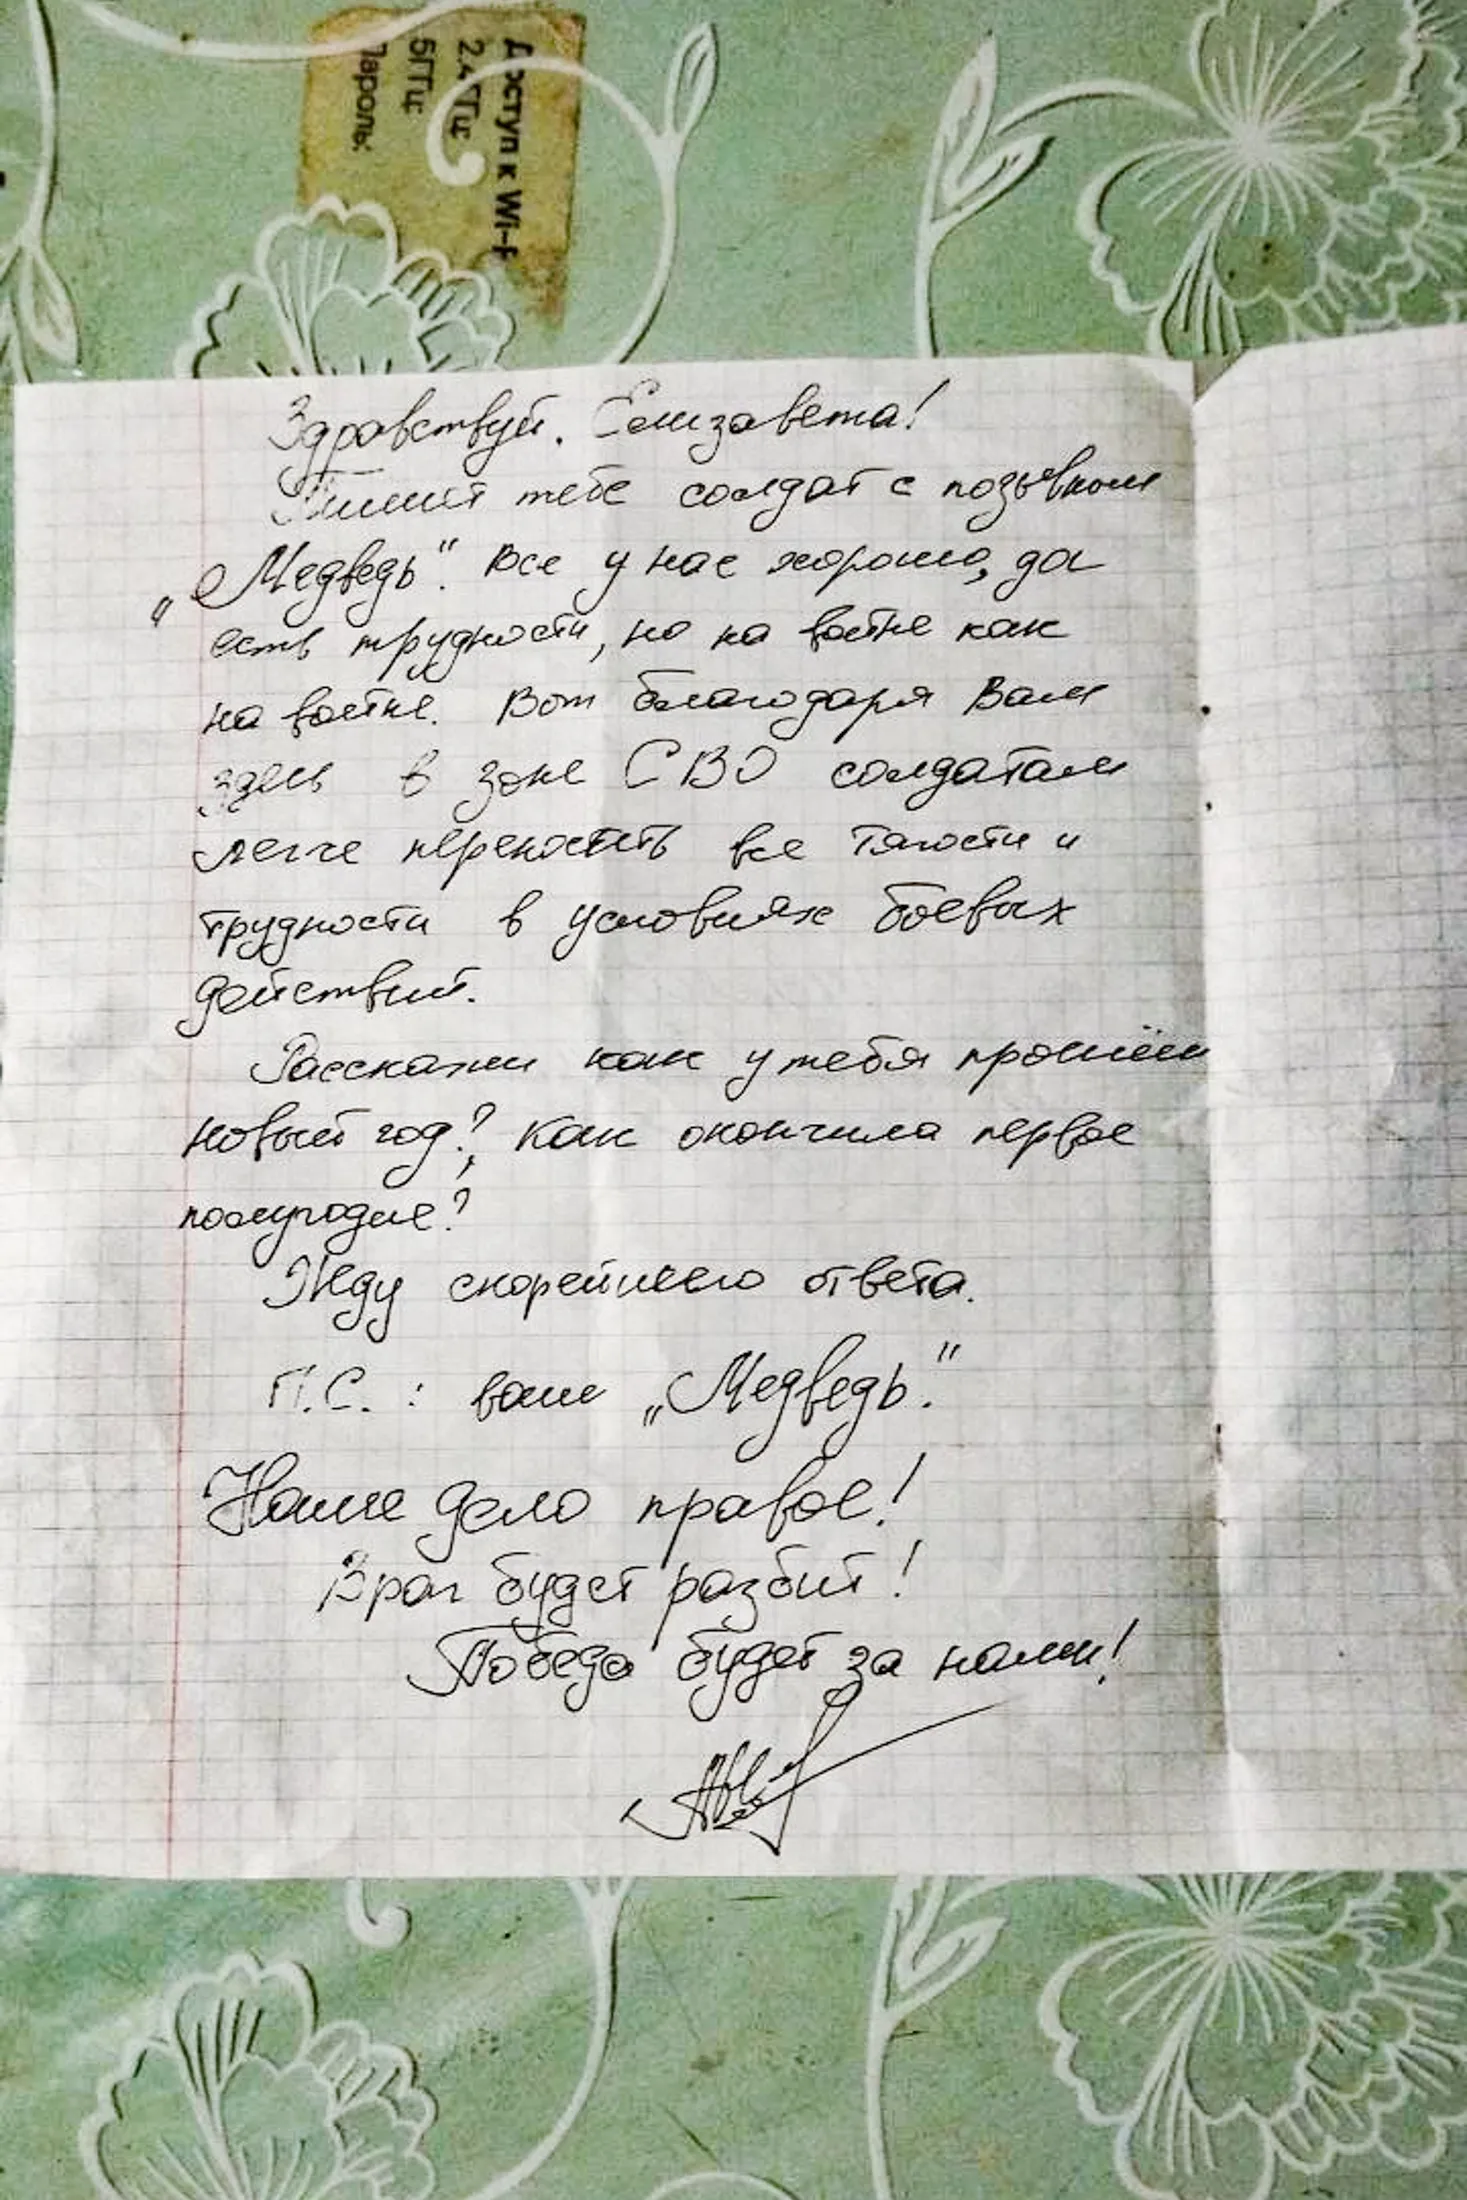 Доступ к Wi-F
2.4 ГГц:
5ГГц:
Пароль:
Здравствуй. Елизавета!
Пишет тебе солдат с позывным
„Медведь". Все у нас хорошо, да
есть трудности, но на войне как
на войне. Вот благодаря Вам
здесь в зоне СВО солдатам
легче переносить все тягости и
трудности в условиях боевых
действий.
Расскажи как у тебя прошёл
новый год?, как окончила первое
полугодие?
Жду скорейшего ответа.
П.С. : ваш „Медведь."
Наше дело правое!
Враг будет разбит!
Победа будет за нами!